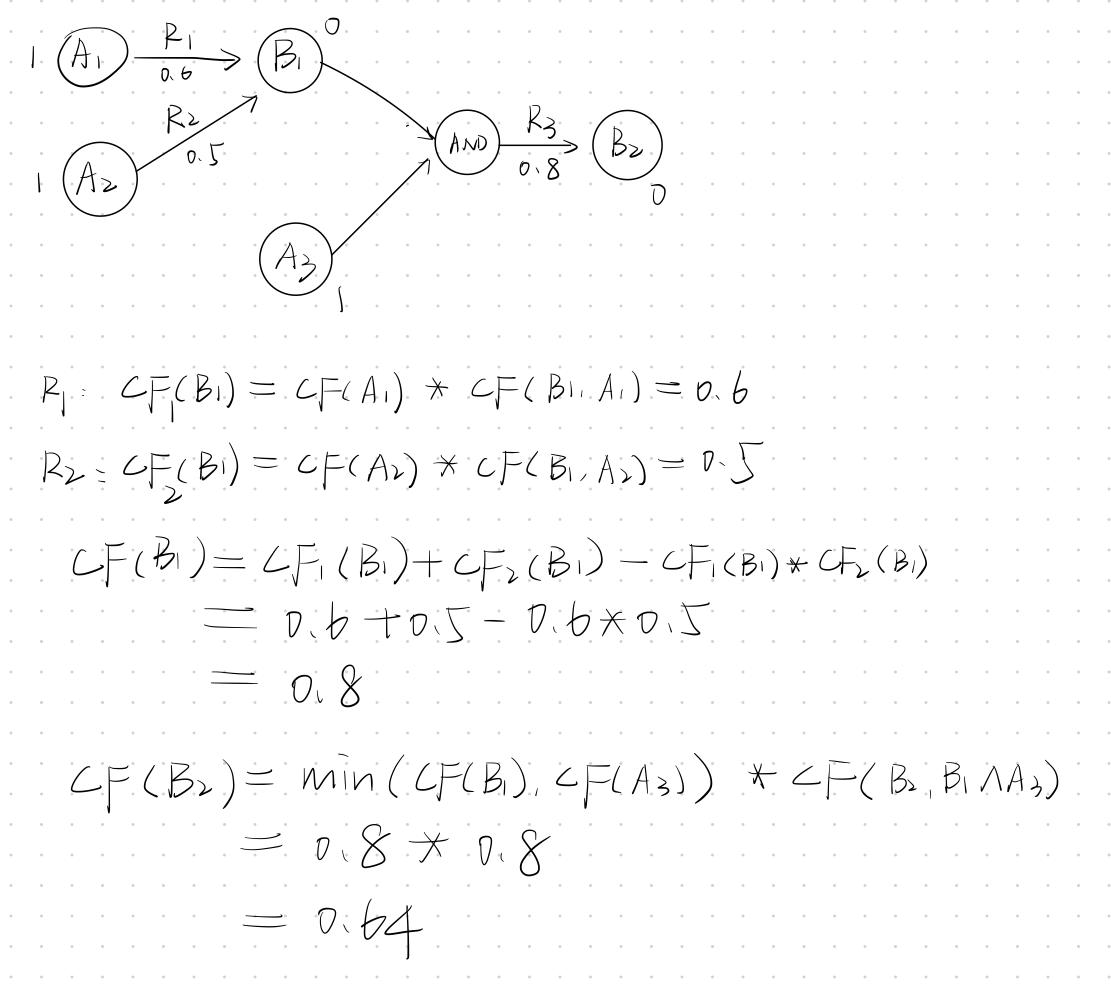 1 A₁ R₁ 0.6 B₁ 0
1 A₂ R₂ 0.5
AND R₃ 0.8 B₂ 0
A₃ 1
R₁: CF₁(B₁) = CF(A₁) * CF(B₁, A₁) = 0.6
R₂: CF₂(B₁) = CF(A₂) * CF(B₁, A₂) = 0.5
CF(B₁) = CF₁(B₁) + CF₂(B₁) - CF₁(B₁) * CF₂(B₁)
= 0.6 + 0.5 - 0.6 * 0.5
= 0.8
CF(B₂) = min(CF(B₁), CF(A₃)) * CF(B₂, B₁ ∧ A₃)
= 0.8 * 0.8
= 0.64